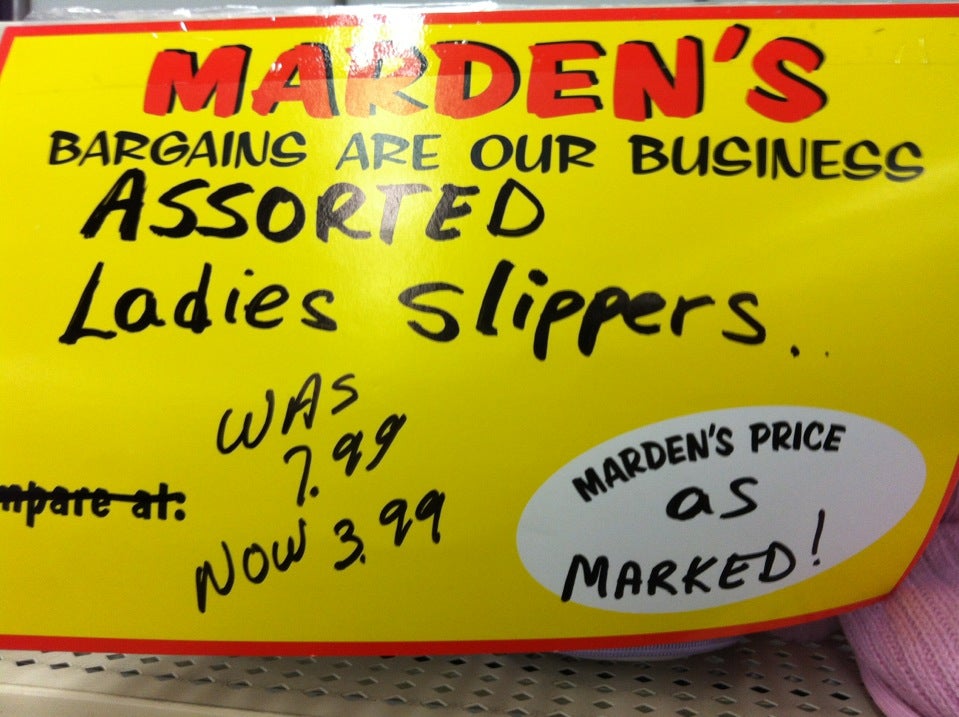 MARDEN'S
BARGAINS ARE OUR BUSINESS
ASSORTED
Ladies Slippers.
WAS
7.99
mpare at:
NOW 3.99
MARDEN'S PRICE
as
MARKED!